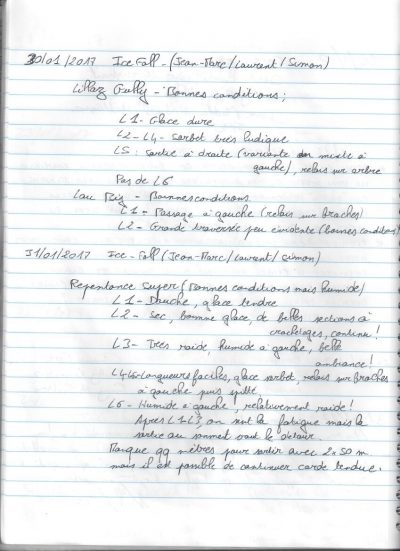 30/01/2017 Ice Fall - (Jean-Marc/Laurent/Simon)
Lillaz Gully - Bonnes conditions;
L1 - Glace dure
L2 - L4 - Sorbet très ludique
L5 : Sortie à droite (variante mixte à
gauche), relais sur arbre
Pas de L6
Lau Bij - Bonnes conditions
L1 - Passage à gauche (relais sur broches)
L2 - Grande traversée peu évidente (bonnes conditions)
31/01/2017 Ice-Fall (Jean-Marc/Laurent/Simon)
Repentance Super (Bonnes conditions mais humide)
L1 - Douche, glace tendre
L2 - Sec, bonne glace, de belles sections à
crochetages, continu!
L3 - Très raide, humide à gauche, belle
ambiance!
L4-L5 - Longueurs faciles, glace sorbet, relais sur broches
à gauche puis spitté
L6 - Humide à gauche, relativement raide!
Après L1-L3, on sent la fatigue mais la
sortie au sommet vaut le détour
Manque qq mètres pour sortir avec 2x50 m
mais il est possible de continuer corde tendue.